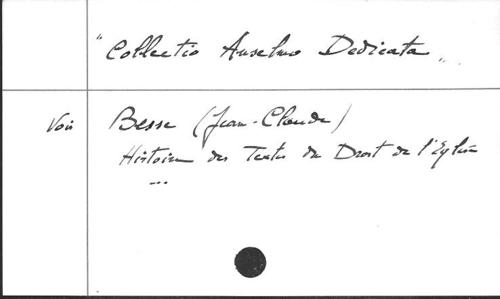 "Collectio Anselmo Dedicata"
Voir Besse (Jean-Claude)
Histoire des Textes du Droit de l'Eglise
...